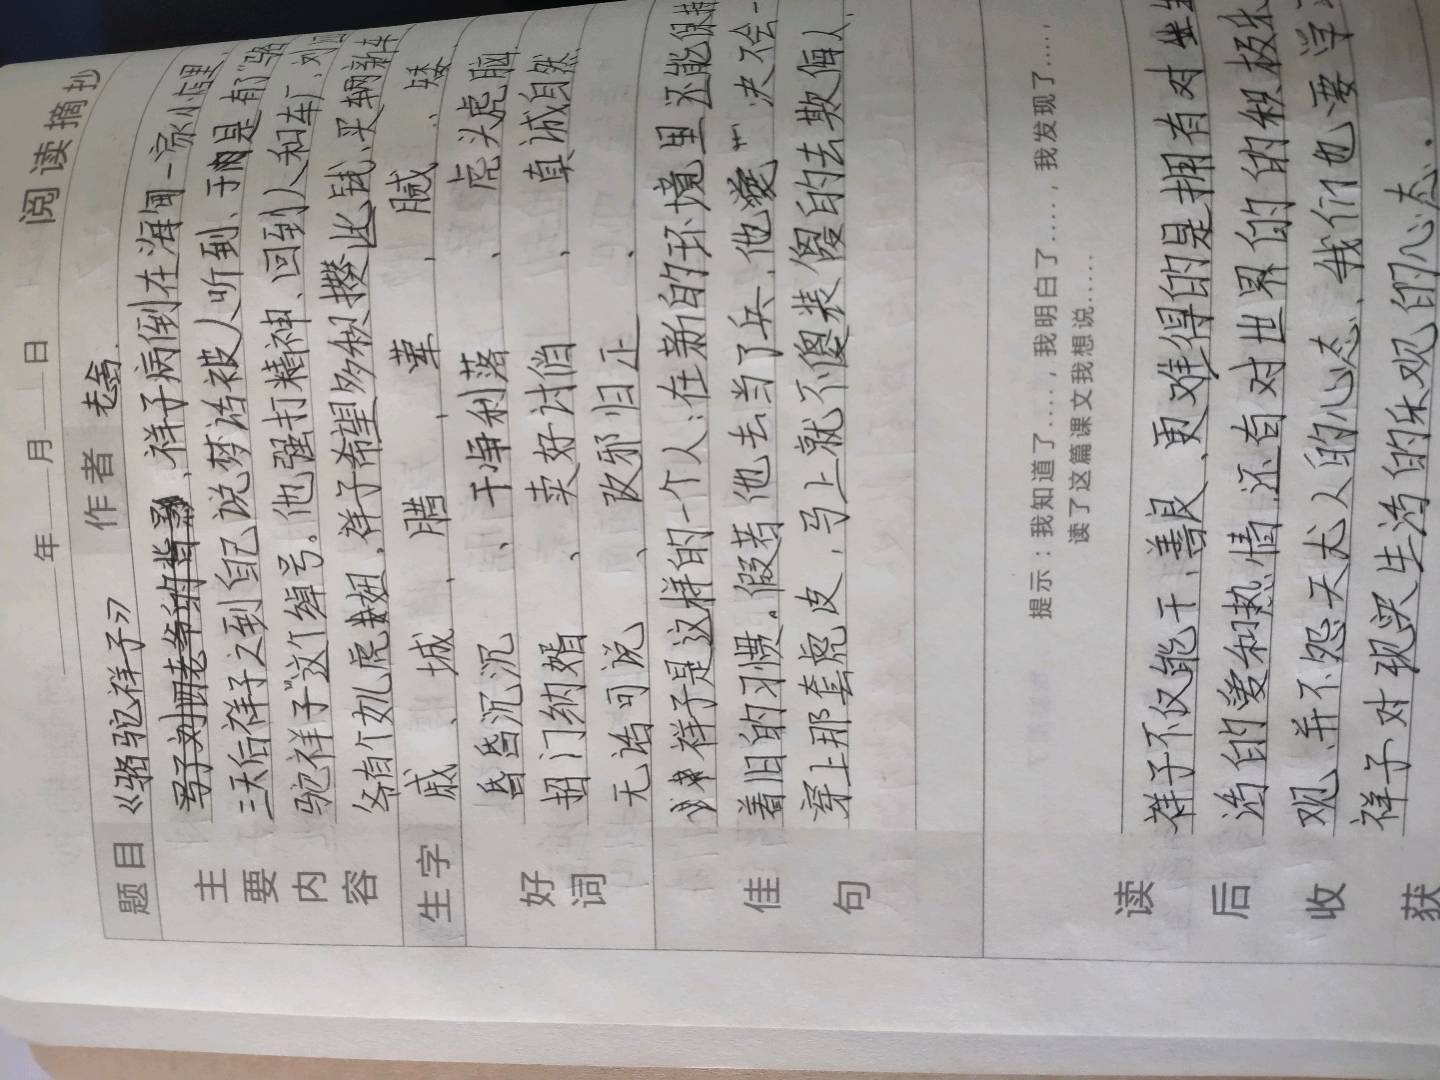 年 月 日 阅读摘抄
题目 《骆驼祥子》 作者 老舍
祥子病倒在海甸一家小店里,
三天后祥子又到自己说梦话被人听到、于是有"骆
驼祥子"这个绰号。他强打精神、回到人和车厂、刘四
爷有个女儿虎妞,祥子希望多积攒些钱、买辆新车
主要内容
生字 戚、城、腊、荤、腻、矮
昏昏沉沉、干净利落、虎头虎脑
扭门纳婿、卖好讨俏、真诚自然
无话可说、改邪归正、
好词
祥子是这样的一个人:在新的环境里还能保持
着旧的习惯。假若他去当了兵,他决不会一
穿上那套虎皮,马上就不傻装傻的去欺侮人,
佳句
提示:我知道了……,我明白了……,我发现了……,
读了这篇课文我想说……
祥子不仅能干、善良、更难得的是拥有对生
活的爱和热情、还有对世界的的积极乐
观、并不怨天尤人的心态、我们也要学习
祥子对现实生活的乐观的心态.
读后收获